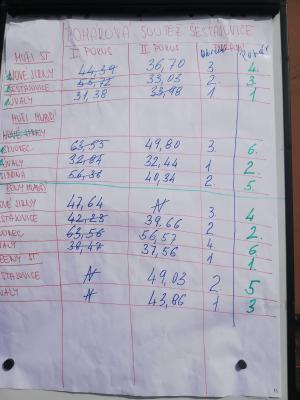 POHÁROVÁ SOUTĚŽ ŠESTAJOVICE
MUŽI ST. I. POKUS II. POKUS POHÁR
NOVÉ JIRNY 44,39 36,70 3 4.
ŠESTAJOVICE 33,03 2. 3.
ÚVALY 31,38 33,98 1 1
MUŽI MLADŠÍ
NOVÉ JIRNY
63,55 49,80 3 6.
ÚVALY 32,84 32,44 1. 2.
56,36 40,34 2. 5.
ŽENY MLADŠÍ
NOVÉ JIRNY 47,64 N 3 4
ŠESTAJOVICE 42,25 39.66 2 2
63,56 56,57 4 6
ÚVALY 38,47 37,56 1 1.
ŽENY ST.
ŠESTAJOVICE N 49,03 2 5
ÚVALY N 43,86 1 3